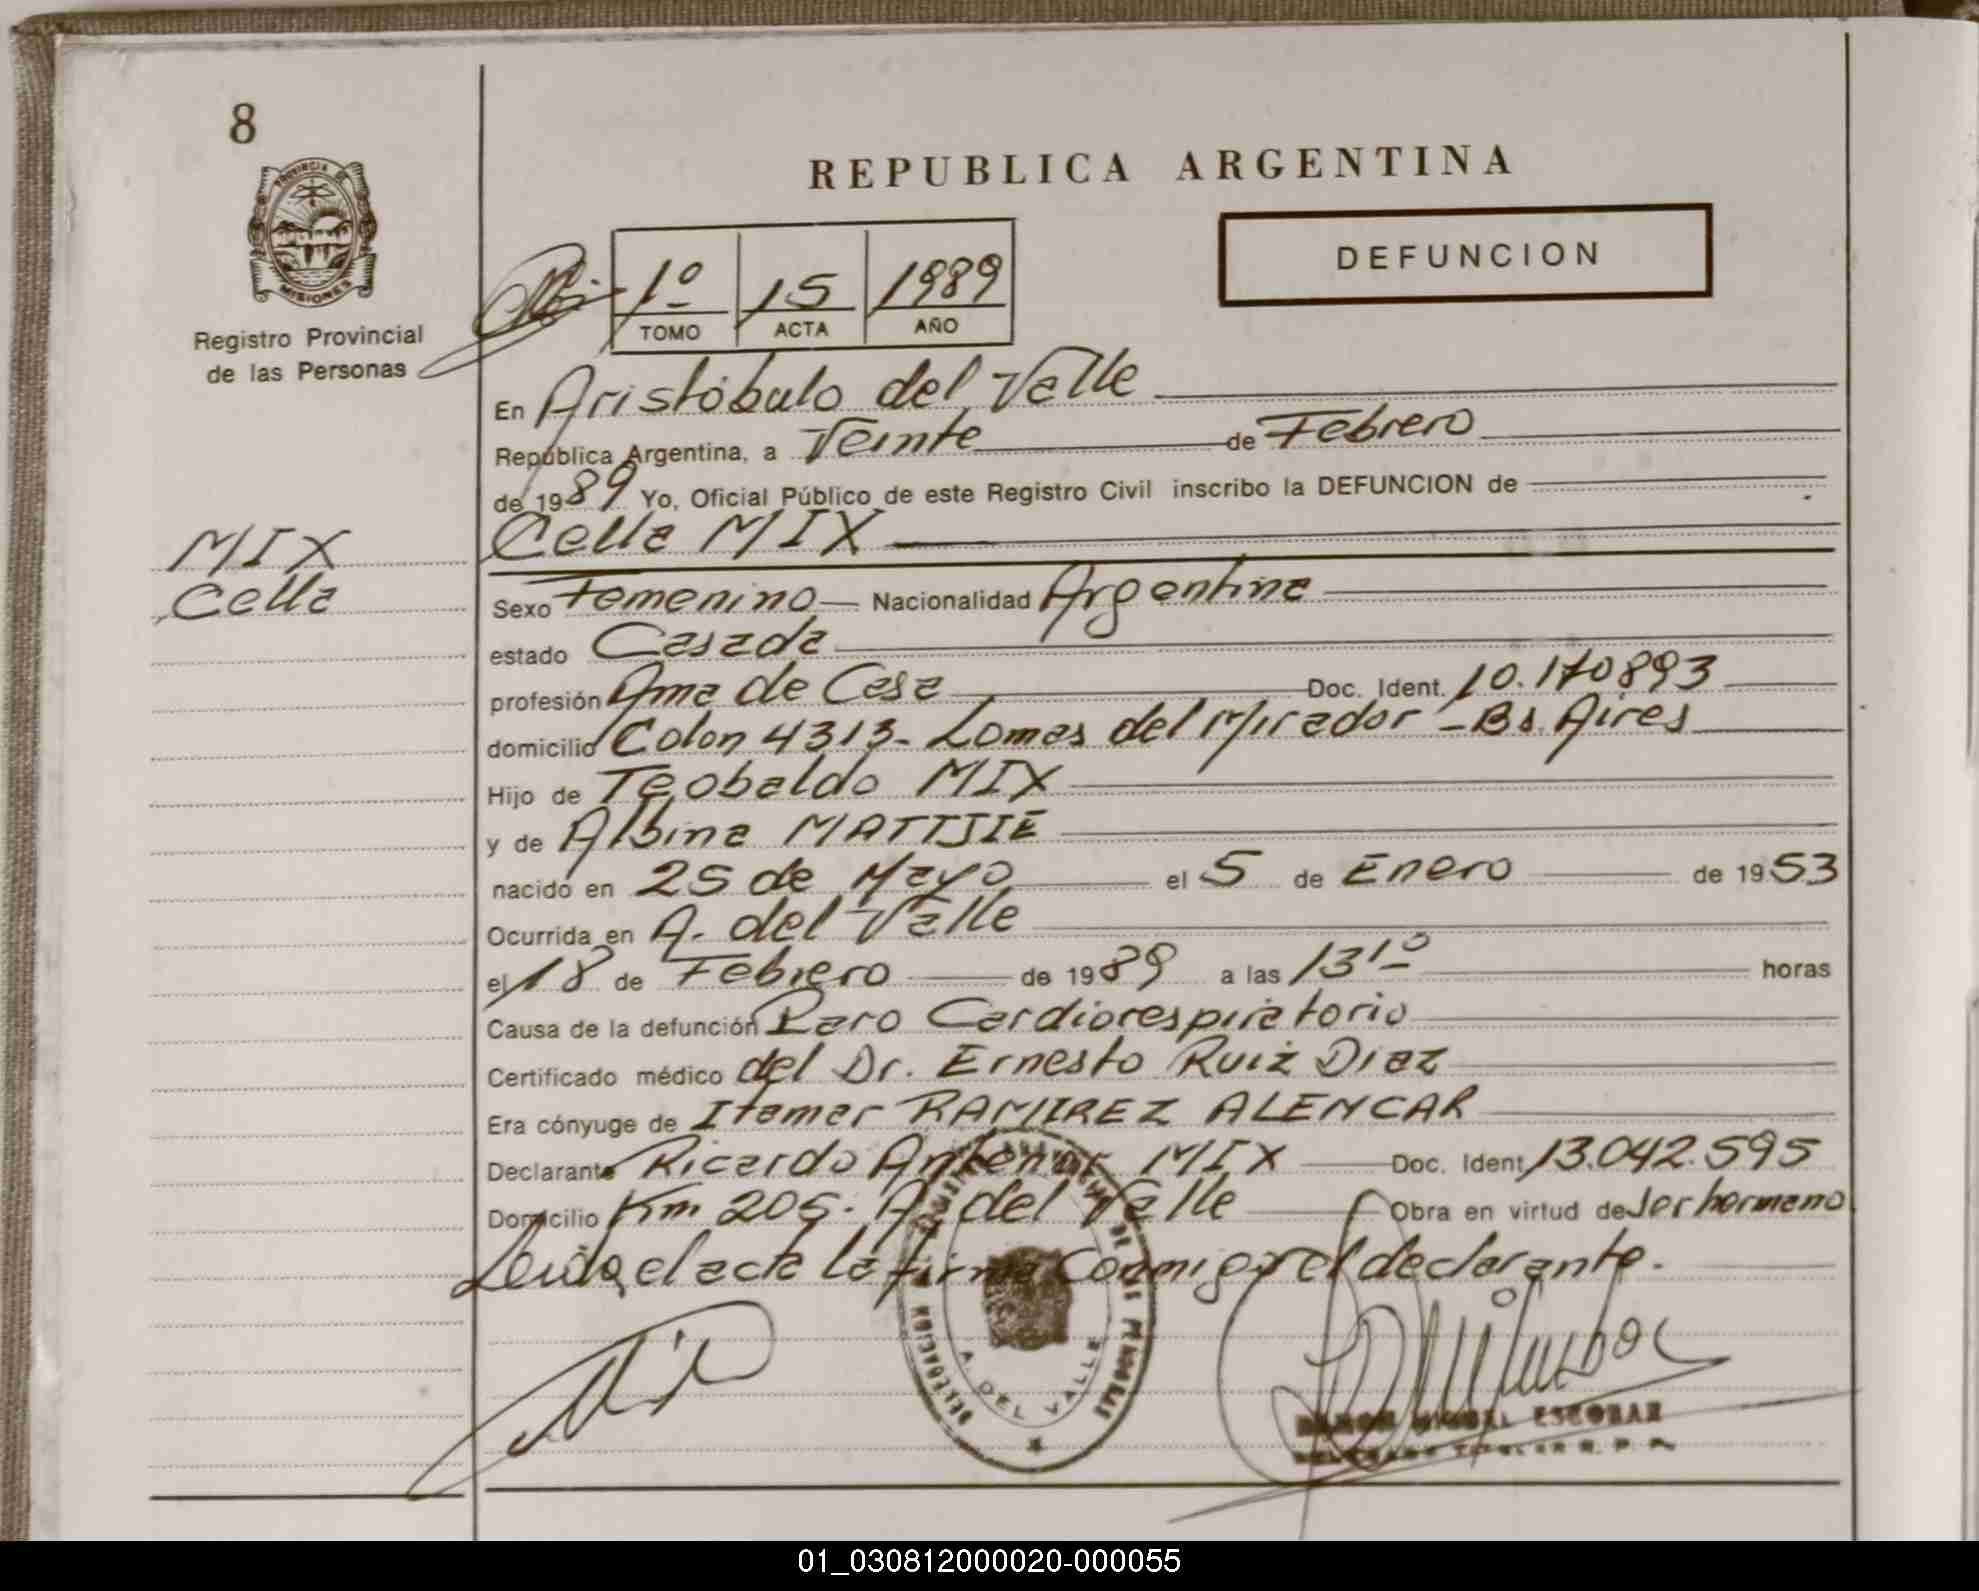 8
PROVINCIA DE
MISIONES
Registro Provincial
de las Personas
REPUBLICA ARGENTINA
DEFUNCION
1º 15 1989
TOMO ACTA AÑO
En Aristóbulo del Valle
República Argentina, a Veinte de Febrero
de 1989 Yo, Oficial Público de este Registro Civil inscribo la DEFUNCION de
Celia MIX
MIX
Celia
Sexo Femenino Nacionalidad Argentina
estado Casada
profesión Ama de Casa Doc. Ident. 10.170893
domicilio Colon 4313- Lomas del Mirador - Bs. Aires
Hijo de Teobaldo MIX
y de Albina MATTJIE
nacido en 25 de Mayo el 5 de Enero de 1953
Ocurrida en A. del Valle
el 18 de Febrero de 1989 a las 13 10 horas
Causa de la defunción Paro Cardiorespiratorio
Certificado médico del Dr. Ernesto Ruiz Diaz
Era cónyuge de Itamar RAMIREZ ALENCAR
Declarante Ricardo Antenor MIX Doc. Ident. 13.042.595
Domicilio Km. 205. A. del Valle Obra en virtud de Ser hermano
Leida el acta la firma Conmigo el declarante.
DELEGACION
DE LAS PERSONAS
A. DEL VALLE
RAMON MIGUEL ESCOBAR
01_030812000020-000055